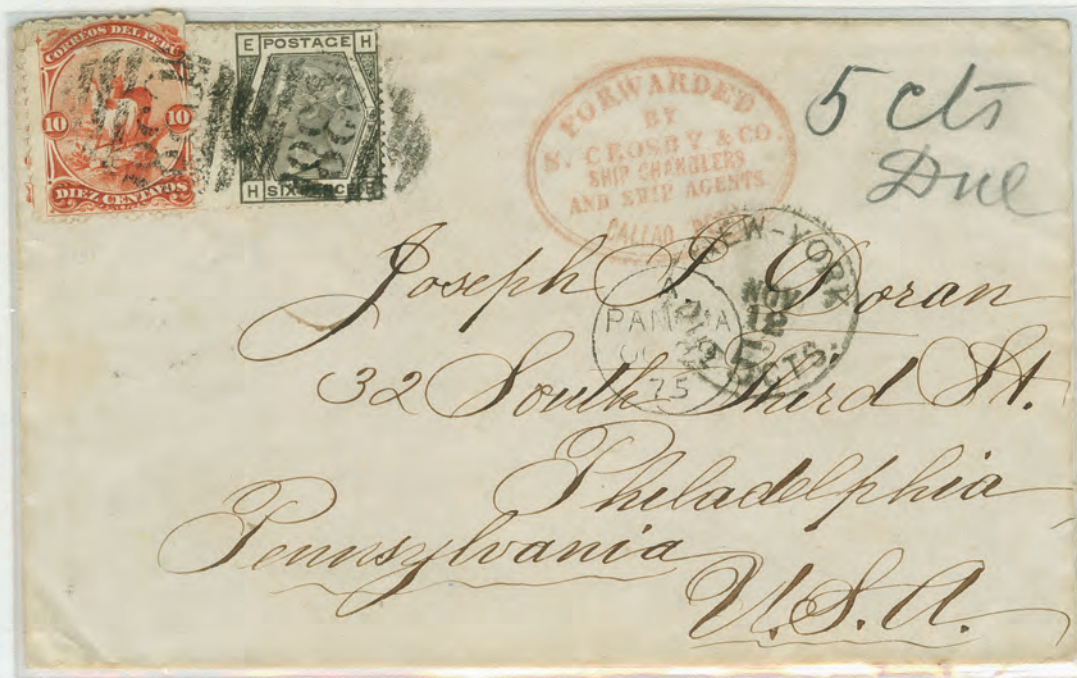 CORREOS DEL PERU
10 10
DIEZ CENTAVOS
E POSTAGE H
H SIX PENCE E
FORWARDED
BY
S. CROSBY & CO.
SHIP CHANDLERS
AND SHIP AGENTS
CALLAO
5 cts
Due
NEW-YORK
NOV
12
CTS.
PANAMA
75
Joseph Doran
32 South Third St.
Philadelphia
Pennsylvania
U.S.A.